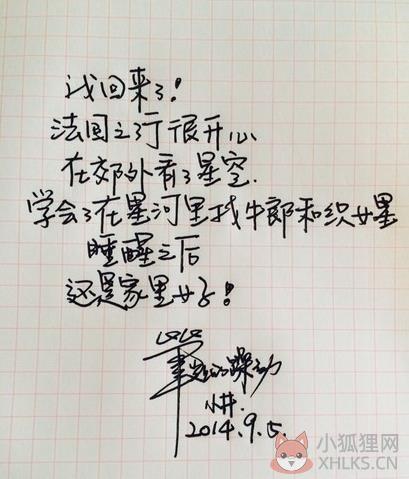 我回来了!
法国之行很开心
在郊外看了星空.
学会了在星河里找牛郎和织女星
睡醒之后
还是家里好!
笔尖的躁动
小井.
2014.9.5.
小狐狸网
XHLKS.CN